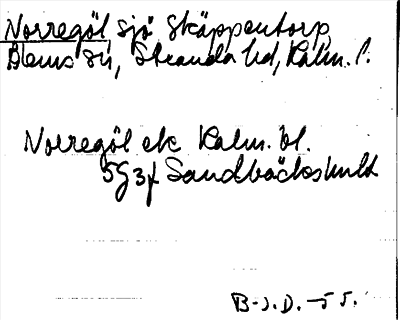 Norregöl, sjö Skäppentorp,
Bl sn, Stranda hd, Kalm. l.
Norregöl ek Kalm. bl.
5G3f Sandbäckshult
B-J.D. -55.